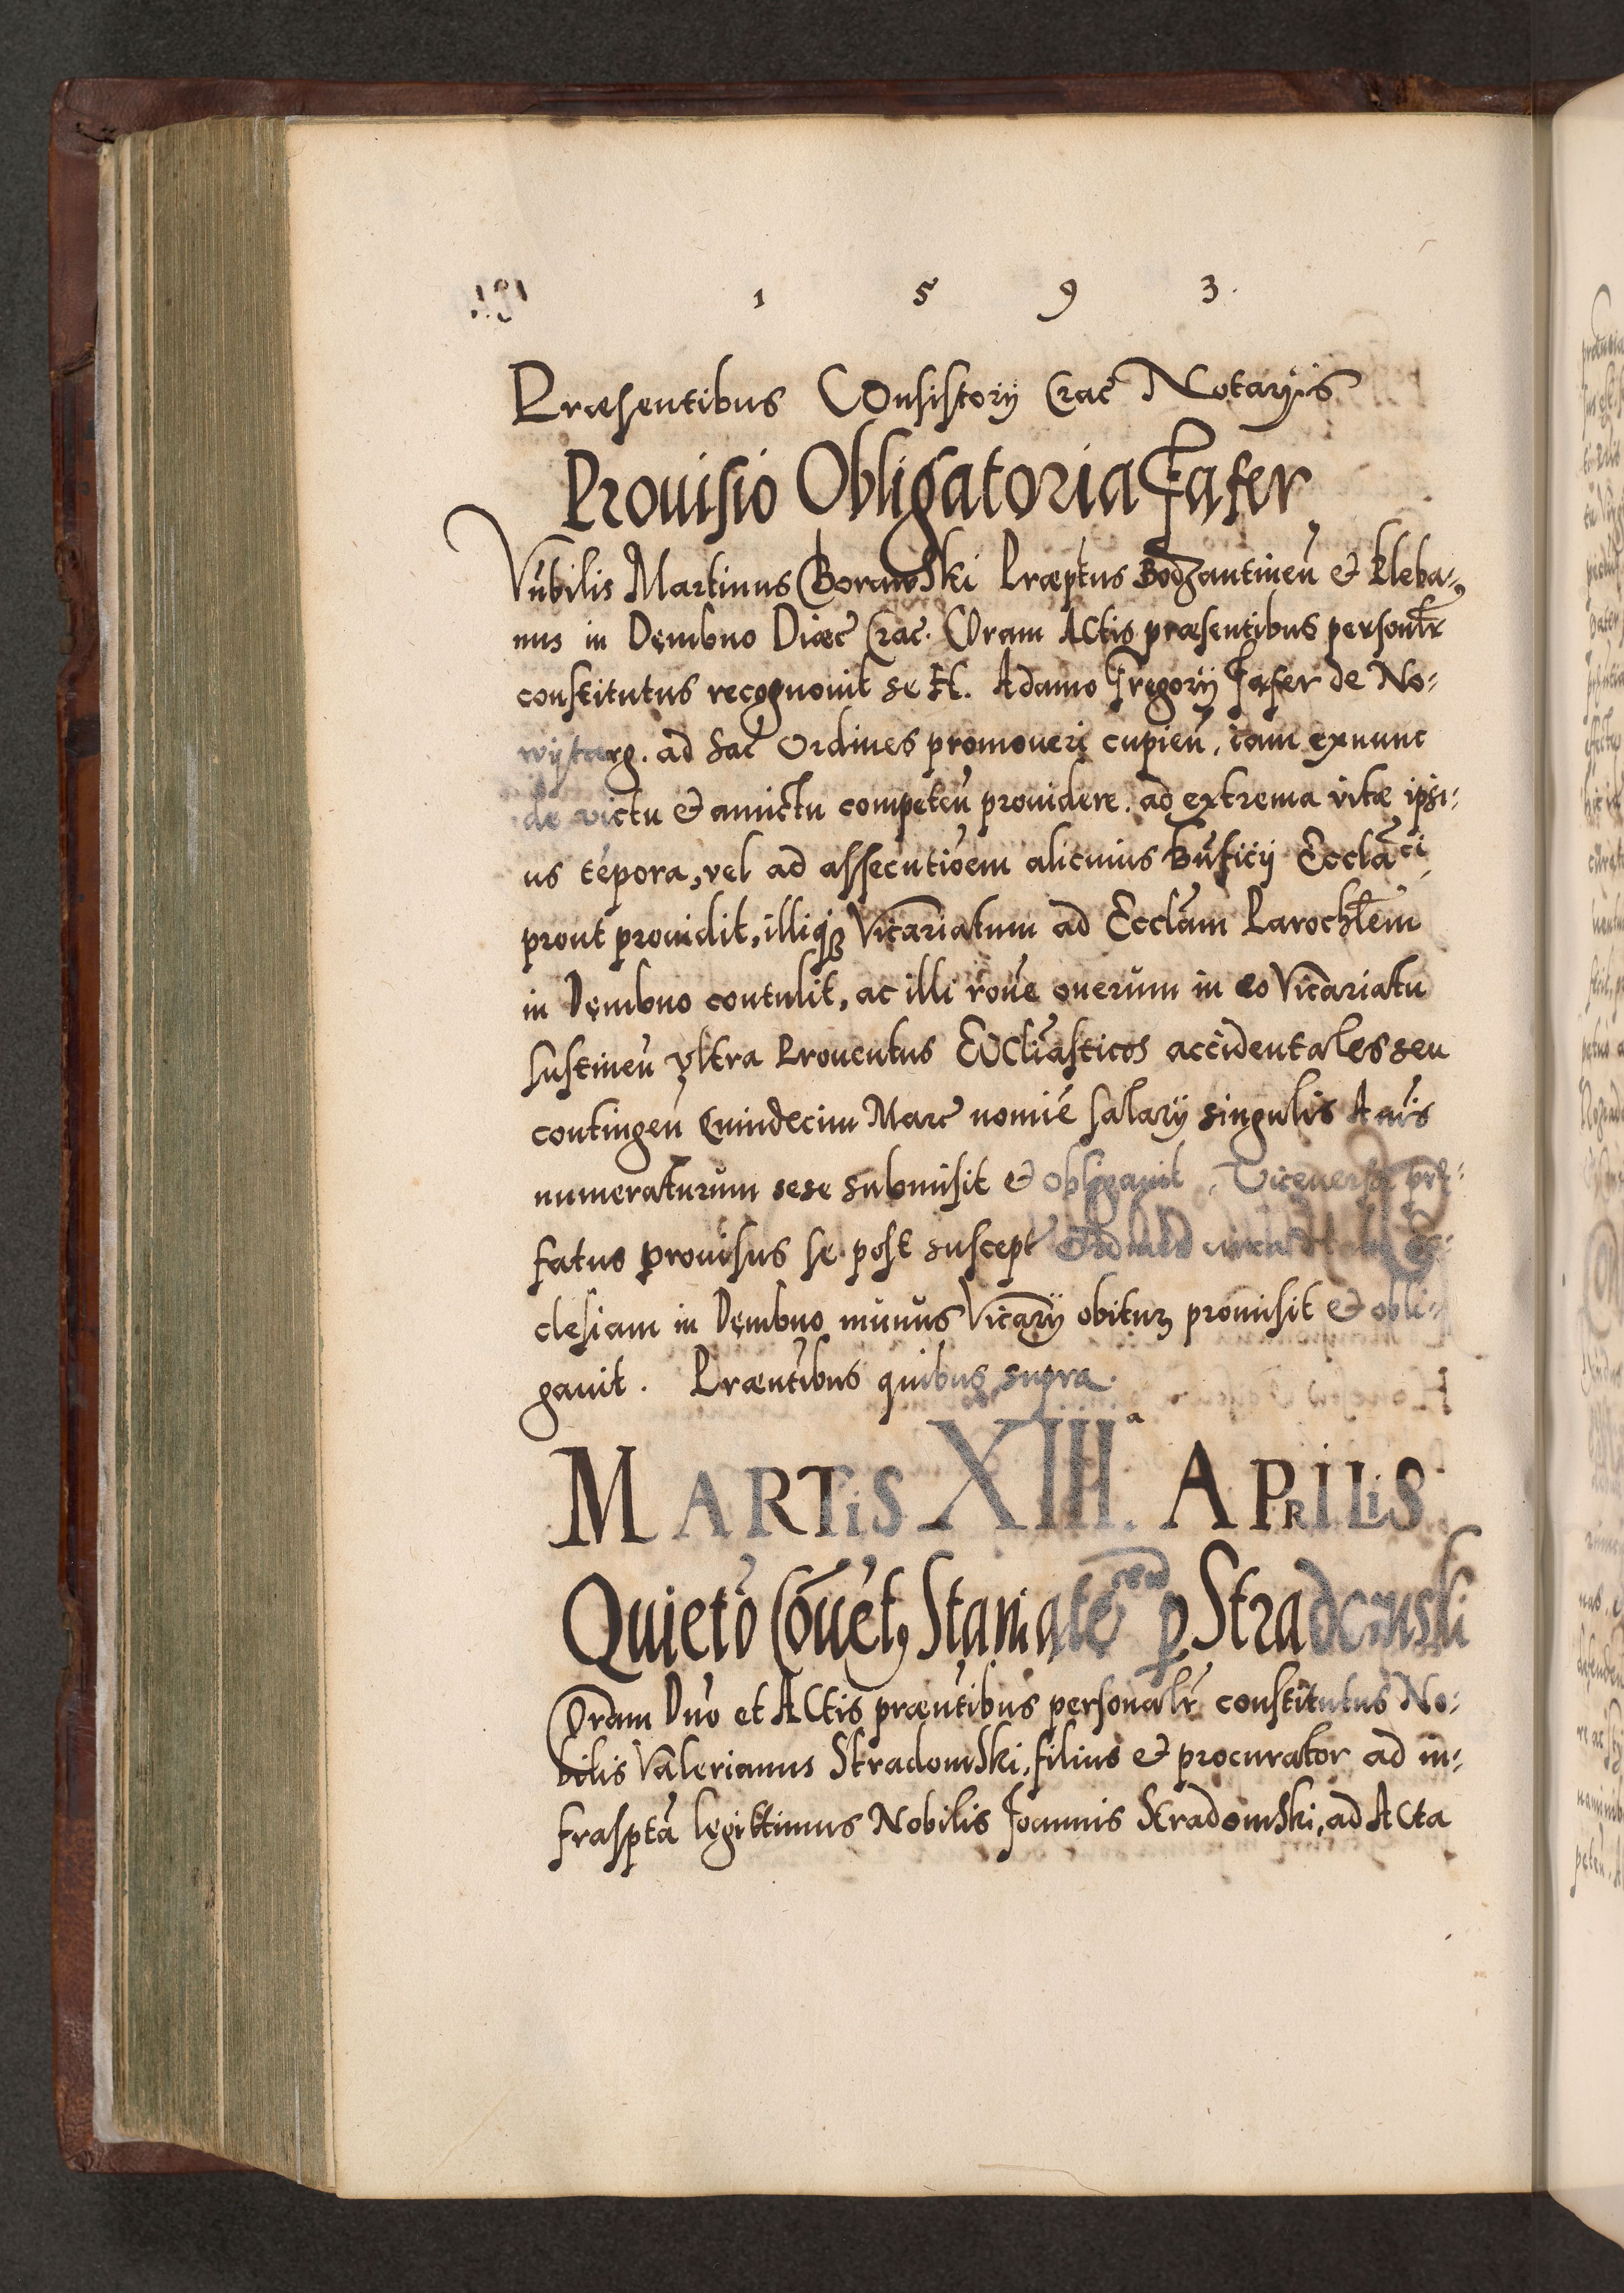 1 5 9 3.
Præsentibus Consistorÿ Crac Notarÿis
Prouisio Obligatoria Fafer
Vn̄bilis Martinus Boranoski Præptus Bodzantinen̄ & Pleba-
nus in Dembno Diæc Crac. Coram Actis præsentibus personl̄r
constitutus recognouit se H. Adamo Gregorÿ Fafer de No-
wÿtarg. ad Sac Ordines promoueri cupien̄, iam exnunc
de victu & amictu competen̄ prouidere. ad extrema vitæ ipsi-
us tēpora, vel ad assecutiōem alicuius Bn̄ficÿ Ecclāci,
prout prouidit, illiqꝫ Vicariatum ad Ecclām Parochl̄em
in Dembno contulit, ac illi rōne onerum in eo Vicariatu
sustinen̄ vltra Prouentus Eccliāsticos accidentales seu
contingen̄ Quindecim Marc nomiē salarÿ singulis An̄is
numeraturum sese submisit & obligauit. Viceuersa præ-
fatus prouisus se post suscept Ord
clesiam in Dembno munus Vicarÿ obiturꝫ promisit & obli-
gauit. Præn̄tibus quibus supra.
MARTIS XIII.ª APRILIS
Quietō Con̄uēt, Staniatēn p Stradomski
Coram Dn̄o et Actis præn̄tibus personal̄r constitutus No-
bilis Valerianus Stradomski, filius & procurator ad in-
frasptā legittimus Nobilis Joannis Stradomski, ad Acta